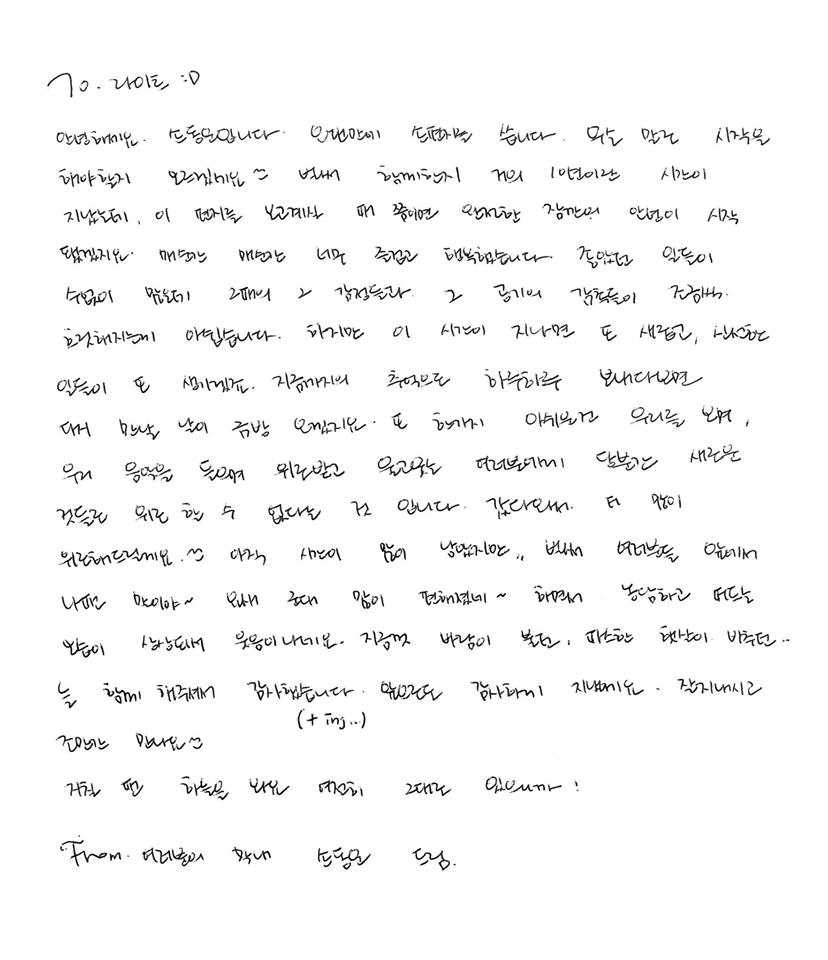 To. 라이트 :D
안녕하세요. 손동운입니다. 오랜만에 손편지를 씁니다. 무슨 말로 시작을
해야할지 모르겠네요 벌써 함께한지 거의 1년이란 시간이
지났는데, 이 편지를 보고계실 때 쯤이면 완전한 잠깐의 안녕이 시작
됐겠지요. 매순간 매순간 너무 즐겁고 행복했습니다. 좋았던 일들이
수없이 많은데 그때의 그 감정들과 그 공기의 감촉들이 조금씩
흐릿해지는게 아쉽습니다. 하지만 이 시간이 지나면 또 새롭고, 신선한
일들이 또 생기겠죠. 지금까지의 추억으로 하루하루 보내다보면
다시 만날 날이 금방 오겠지요. 또 한가지 아쉬운건 우리를 보며,
우리 음악을 들으며 위로받고 울고웃는 여러분에게 당분간 새로운
것들로 위로 할 수 없다는 것 입니다. 갔다와서 더 많이
위로해드릴게요. 아직 시간이 많이 남았지만,, 벌써 여러분들 앞에서
나때는 말이야~ 요새 군대 많이 편해졌네~ 하면서 농담하고 떠드는
모습이 상상되서 웃음이나네요. 지금껏 바람이 불던, 따스한 햇살이 비추던..
늘 함께 해주셔서 감사했습니다. 앞으로도 감사하게 지낼게요. 잘지내시고
(+ ing..)
조만간 만나요
거친 펜 하늘을 봐요 여전히 그대로 있으니까!
From. 여러분의 막내 손동운 드림.